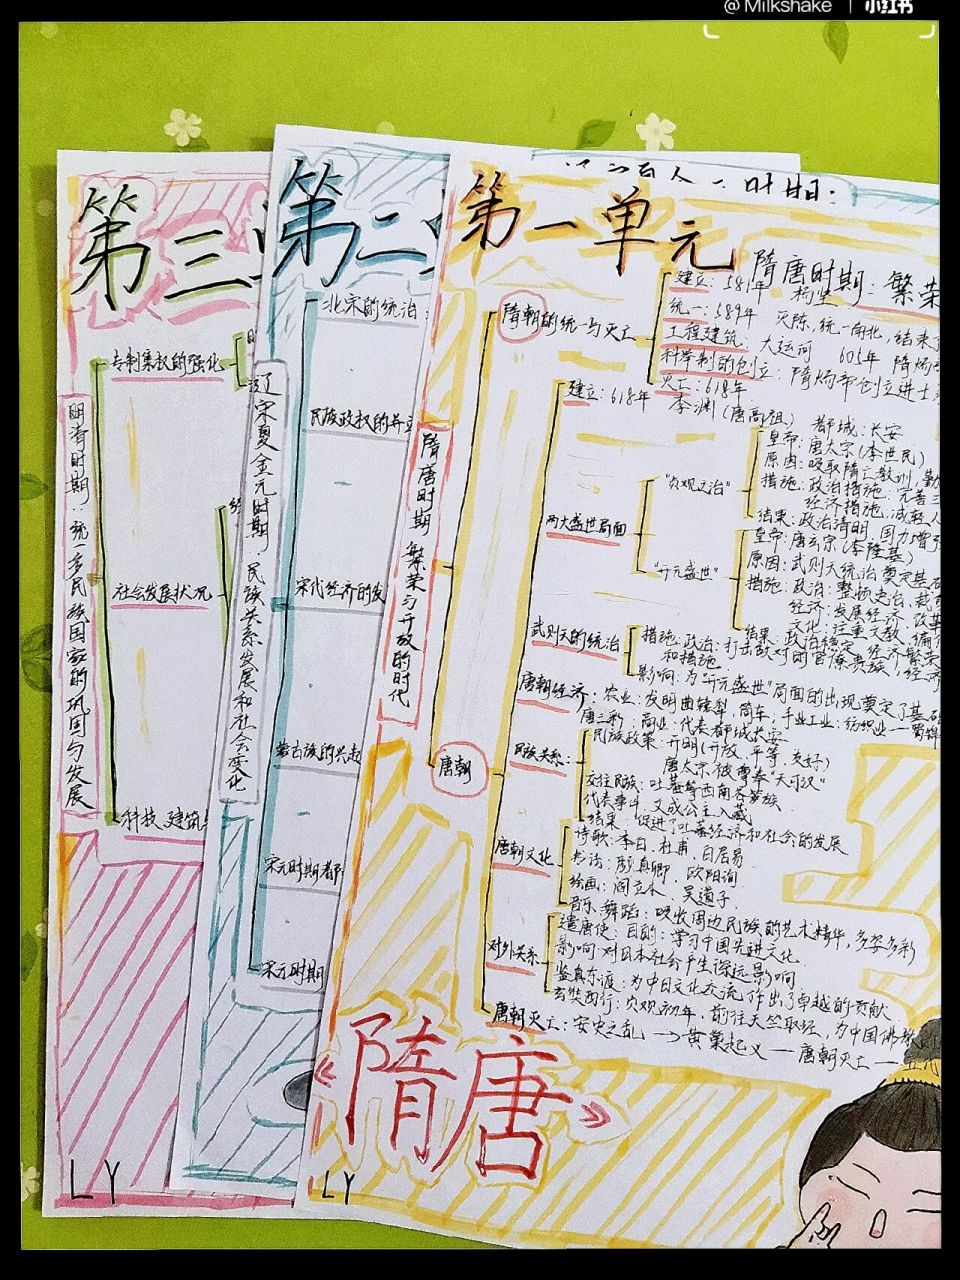 @Milkshake
小红书
第三
专制集权的强化
明清时期：统一多民族国家的巩固与发展
社会发展状况
科技、建筑
LY
第二
北宋的统治：
民族政权的并立
辽宋夏金元时期：民族关系发展和社会变化
宋代经济的发
蒙古族的兴起
宋元时期都
宋元时期
第一单元
隋唐时期：繁荣
隋唐时期 繁荣与开放的时代
隋朝的统一与灭亡
建立：581年 杨坚
统一：589年 灭陈，统一南北，结束了
工程建筑：大运河 605年 隋炀帝
科举制的创立：隋炀帝创立进士
灭亡：618年
唐朝
建立：618年 李渊（唐高祖）
都城：长安
两大盛世局面
“贞观之治”
皇帝：唐太宗（李世民）
原因：吸取隋亡教训，勤
措施：政治措施：完善三
经济措施：减轻人
结果：政治清明，国力增强
“开元盛世”
皇帝：唐玄宗（李隆基）
原因：武则天统治奠定基础
措施：政治：整顿吏治，裁
经济：发展经济，改革
文化：注重文教，编
结果：政治稳定 经济繁荣
武则天的统治
措施：政治：打击敌对的官僚贵族，经济
和措施
影响：为“开元盛世”局面的出现奠定了基础
唐朝经济：农业：发明曲辕犁，筒车，手业工业：纺织业—蜀锦
唐三彩；商业：代表都城长安
民族关系：
民族政策：开明（开放、平等、友好）
唐太宗被尊奉“天可汗”
交往民族：吐蕃等西南各少族
代表事件：文成公主入藏
结果：促进了吐蕃经济和社会的发展
唐朝文化
诗歌：李白、杜甫、白居易
书法：颜真卿、欧阳询
绘画：阎立本、吴道子
音乐、舞蹈：吸收周边民族的艺术精华，多姿多彩
对外关系
遣唐使：目的：学习中国先进文化
影响：对日本社会产生深远影响
鉴真东渡：为中日文化交流作出了卓越的贡献
玄奘西行：贞观初年，前往天竺取经，为中国佛教
唐朝灭亡：安史之乱→黄巢起义—唐朝灭亡—五
隋唐
LY